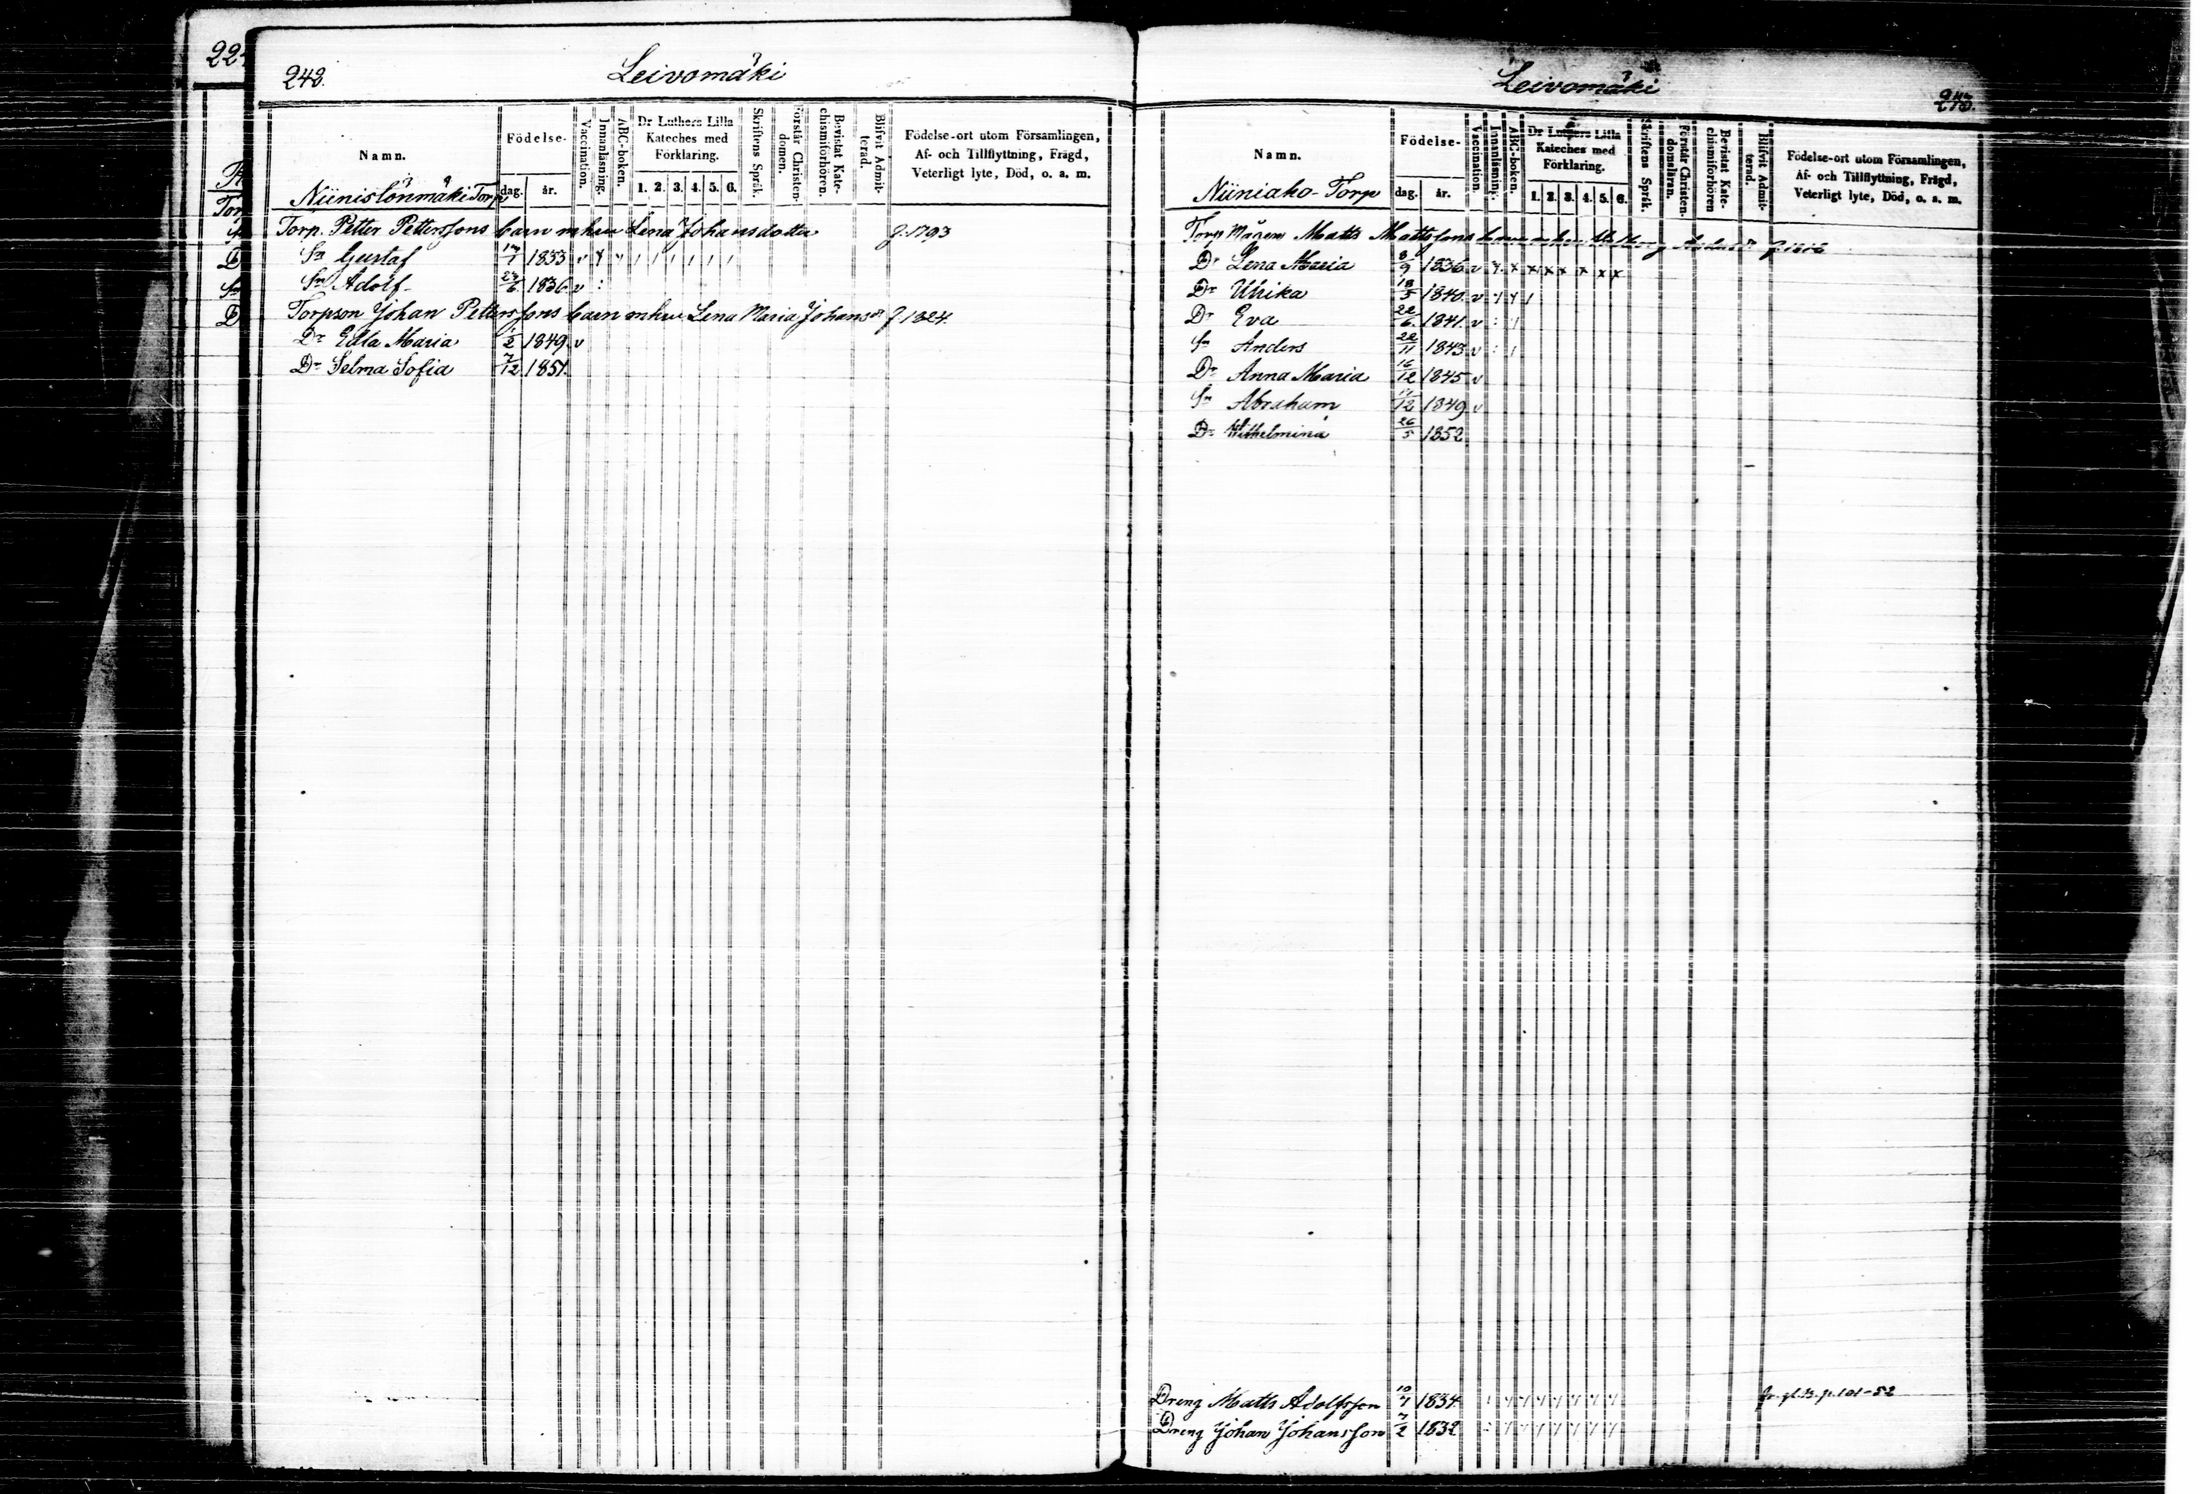 242.
Leivomäki
Namn.
Födelse-
dag.
år.
Vaccination.
Innanläsning.
ABC-boken.
Dr Luthers Lilla
Kateches med
Förklaring.
1. 2. 3. 4. 5. 6.
Skriftens Språk.
Förstår Christen-
domen.
Bevistat Kate-
chismiförhören.
Blifvit Admit-
terad.
Födelse-ort utom Församlingen,
Af- och Tillflyttning, Frägd,
Veterligt lyte, Död, o. a. m.
Torp
Torp. Petter Petterssons barn m hu Lena Johansdotter f. 1793
Sn Gustaf 1833 v
Sn Adolf 1836 v
Torpson Johan Petterssons barn m hu Lena Maria Johansdr f. 1824.
Dr Edla Maria 1849. v
Dr Selma Sofia 7/12 1851.
Leivomäki
243.
Namn.
Födelse-
dag.
år.
Vaccination.
Innanläsning.
ABC-boken.
Dr Luthers Lilla
Kateches med
Förklaring.
1. 2. 3. 4. 5. 6.
Skriftens Språk.
Förstår Christen-
domsläran.
Bevistat Kate-
chismiförhören
Blifvit Admit-
terad.
Födelse-ort utom Församlingen,
Af- och Tillflyttning, Frägd,
Veterligt lyte, Död, o. s. m.
Niiniaho Torp
Torp Matts Mattssons barn m hu
Dr Lena Maria 8/9 1836 v x x x x x x x
Dr Ulrika 18/5 1840 v
Dr Eva 22/6 1841. v
Sn Anders 22/11 1843 v
Dr Anna Maria 16/12 1845 v
Sn Abraham 1849 v
Dr Wilhelmina 26/5 1852
Dreng Matts Adolfsson 1834
Dreng Johan Johansson 7/2 1832